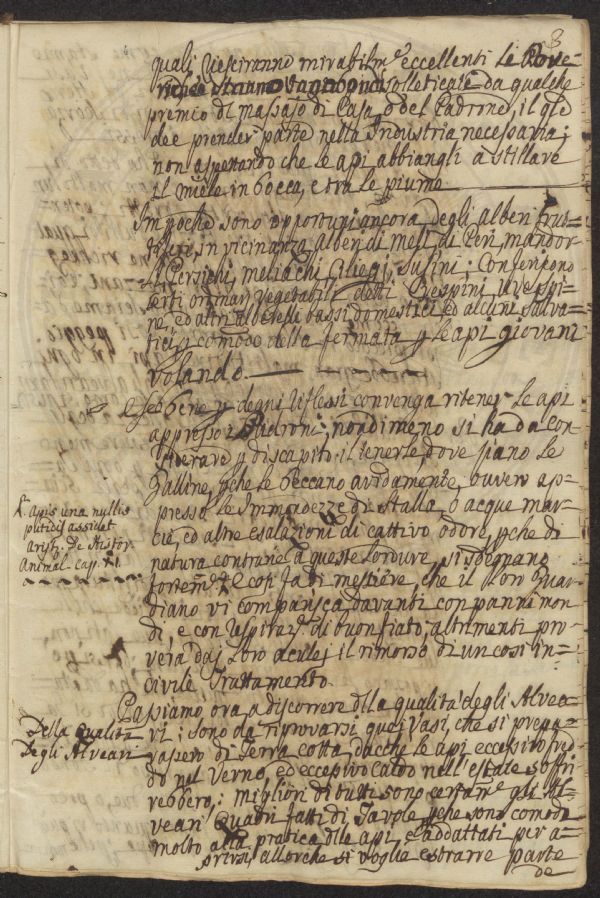 3
quali riesciranno mirabilm.e eccellenti le
solleticate da qualche
premio dl massajo di Casa, o del Padrone, il qle
dee prender parte nella Industria necessaria;
non aspettando che le api abbiangli a stillare
il miele in bocca, e tra le piume
In poche sono opportuni ancora degli alberi frut-
in vicinanza alberi di meli, di Peri, mandor-
li, Persichi, meliachi, Ciliegi, Susini: Conferiscono
certi ordinarj vegetabili detti Crespini, Uve spi-
ne, ed altri alberelli bassi domestici ed alcuni salva-
tici, p comodo della fermata p le api giovani
volando.
E sebbene p degni riflessi convenga ritener le api
appresso i Padroni; nondimeno si ha da con-
siderare p discapito il tenerle, dove siano le
Galline, pche le beccano avidamente, ovvero ap-
presso le Immondezze di Stalla, o acque mar-
cie, ed altre esalazioni di cattivo odore, pche di
natura contrarie a queste lordure, si sdegnano
fortem.te E così fa di mestiere, che il loro Guar-
diano vi comparisca davanti con panni mon-
di, e con respiraz.e di buon fiato; altrimenti pro-
verà daj loro aculej il rimorso di un così in-
civile Trattamento.
apis una nullis
putidis assidet
Arist. De Histor.
Animal. cap. XI.
Passiamo ora a discorrere dlla qualità degli Alvea-
rj: sono da riprovarsi quei Vasi, che si prepa-
rassero di Terra cotta, dacche le api eccessivo fred-
do nel Verno, ed eccessivo caldo nell'estate soffri-
rebbero: migliori di tutti sono certam.e gli Al-
veari quadri fatti di Tavole, pche sono comodi
molto alla pratica dlle api, e addattati per a-
prirsi, allorche si voglia estrarre parte
de
Della qualità
degli Alveari